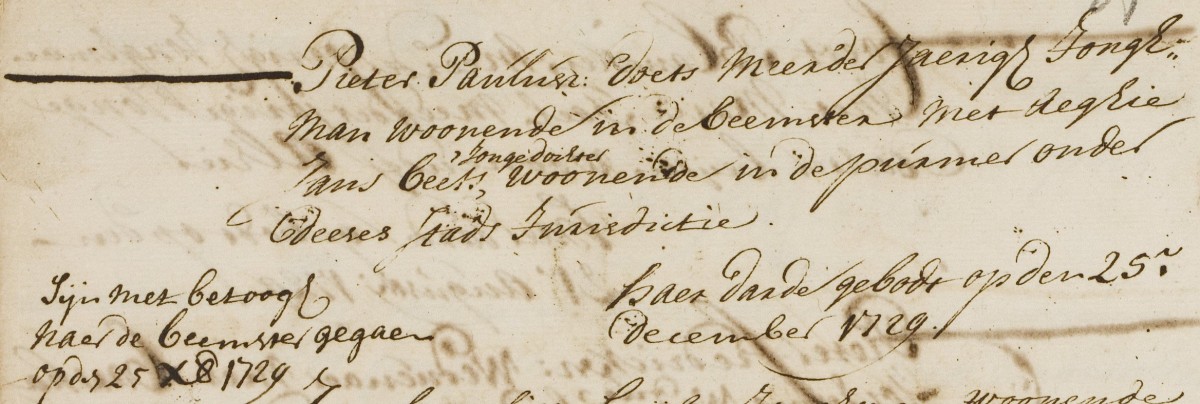 Pieter Paulusz: Doets Meerder Jaerige Jongh=
man woonende in de beemster met Aeghie
Jans beets, Jongedochter woonende in de purmer onder
deeses stads Jurisdictie.
haer darde gebodt op den 25.
december 1729.
Sijn met betoogh
naer de beemster gegaen
op dn 25 XB 1729
woonende